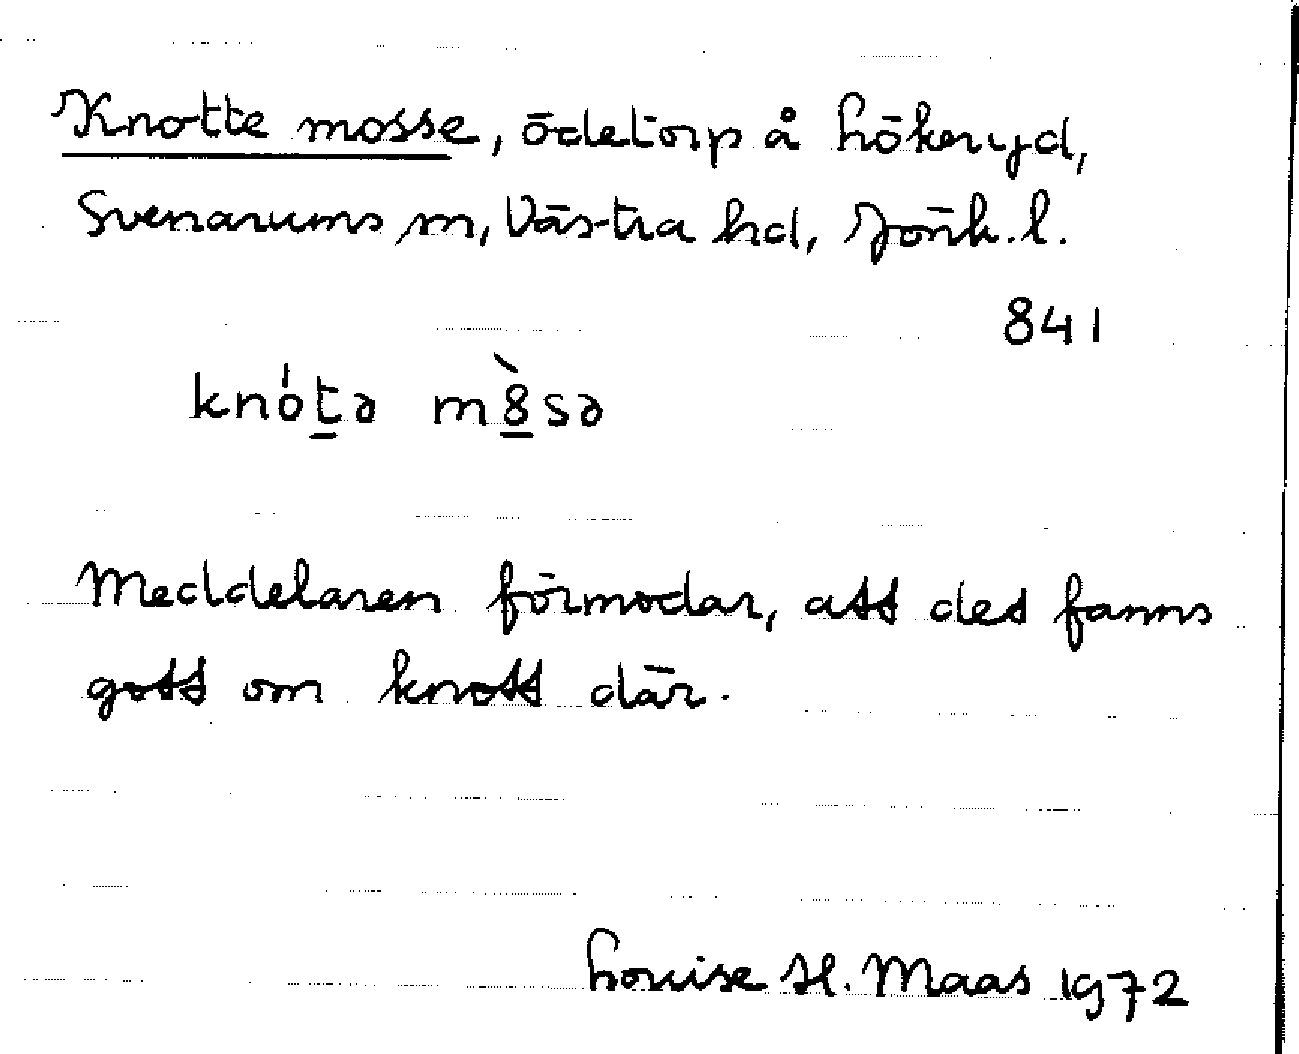 Knotte mosse, ödetorp å Hökeryd,
Svenarums sn, Västra hd, Jönk. l.
841
knótə m8̀sə
Meddelaren förmodar, att det fanns
gott om knott där.
Louise H. Maas 1972